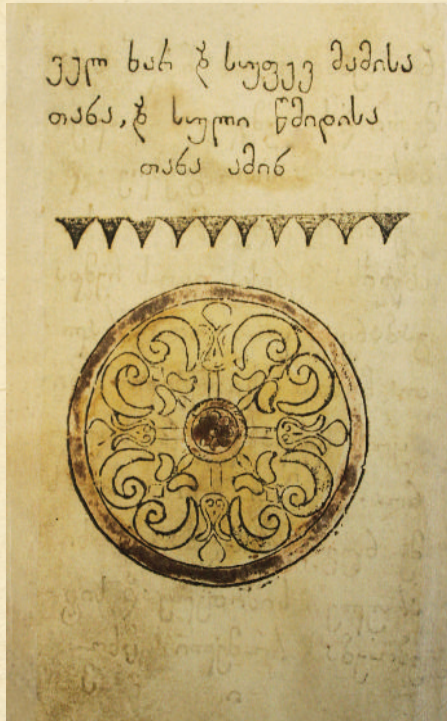 ველ ხარ და სუფევ მამისა
თანა, და სული წმიდისა
თანა ამინ